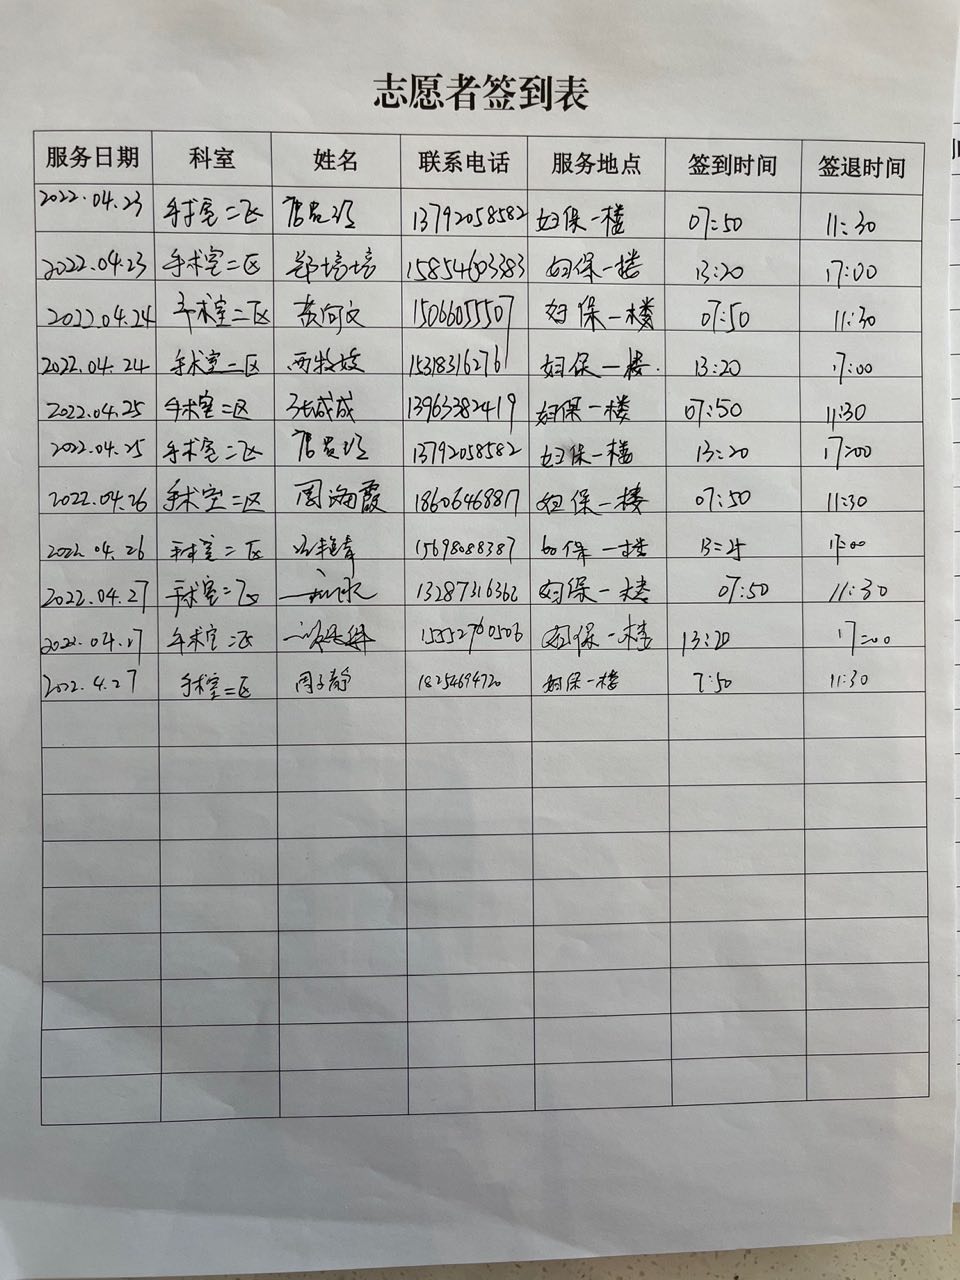 志愿者签到表
服务日期 科室 姓名 联系电话 服务地点 签到时间 签退时间
2022.04.23 手术室二区 13792058582 妇保一楼 07:50 11:30
2022.04.23 手术室二区 郑培培 15854603383 妇保一楼 13:20 17:00
2022.04.24 手术室二区 黄向文 15066055507 妇保一楼 07:50 11:30
2022.04.24 手术室二区 15318316276 妇保一楼. 13:20 17:00
2022.04.25 手术室二区 张成成 13963382419 妇保一楼 07:50 11:30
2022.04.25 手术室二区 13792058582 妇保一楼 13:20 17:00
2022.04.26 手术室二区 周海霞 18606468817 妇保一楼 07:50 11:30
2022.04.26 手术室二区 15698088387 妇保一楼 17:00
2022.04.27 手术室二区 13287316362 妇保一楼 07:50 11:30
2022.04.27 手术室二区 妇保一楼 13:20 17:00
2022.4.27 手术室二区 周子静 18254694720 妇保一楼 7:50 11:30